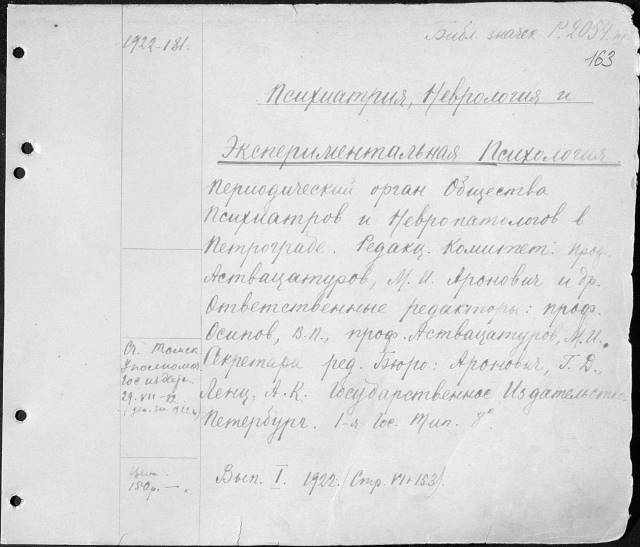 1922-181.
Библ. значек P. 2054
163
Психиатрия, Неврология и
Экспериментальная Психология.
Периодический орган Общества
Психиатров и Невропатологов в
Петрограде. Редакц. Комитет: проф.
Аствацатуров, М. И. Аронович и др.
Ответственные редакторы: проф.
Осипов, В.П., проф. Аствацатуров, М.И.
Секретари ред. Бюро: Аронович, Г. Д.,
Ленц, А. К. Государственное Издательство
Петербург. 1-я Гос. Тип. 8°
От Томск.
Уполномоч.
Гос издат.
29. VII-22
Вып. I. 1922. (Стр. VI+153).
150р. —